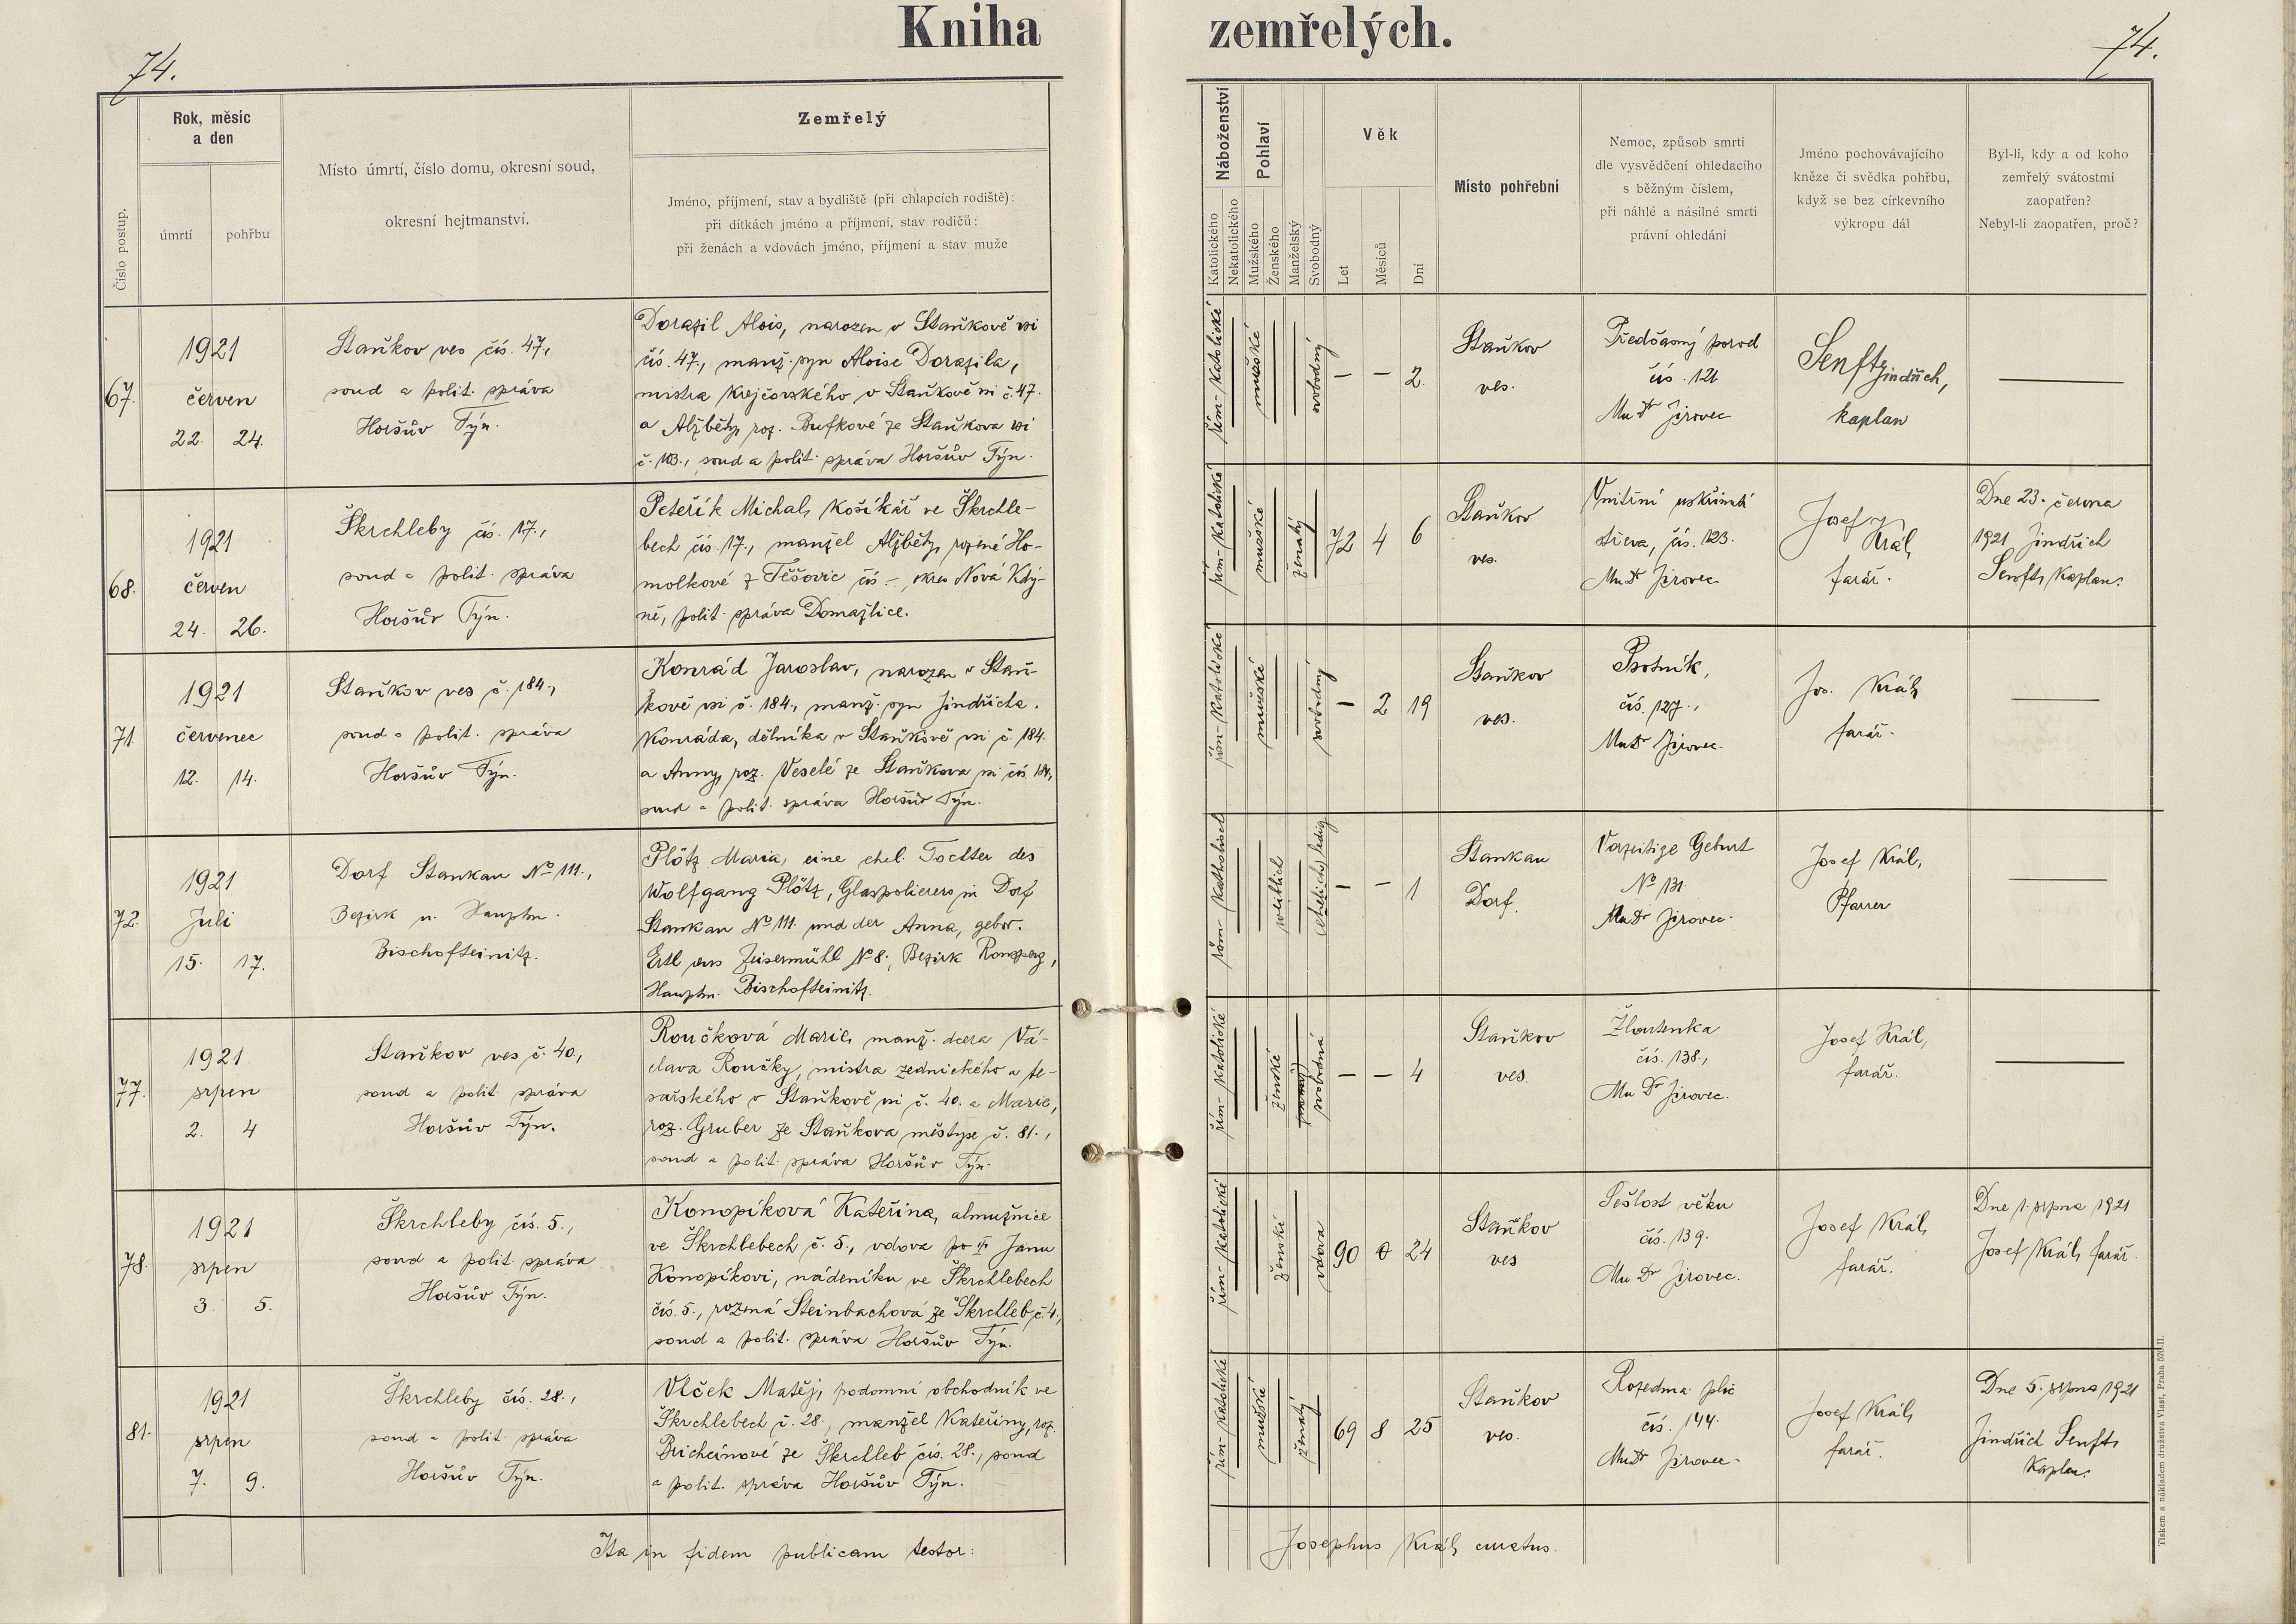 Kniha zemřelých.
74.
74.
Číslo postup.
Rok, měsíc
a den
úmrtí
pohřbu
Místo úmrtí, číslo domu, okresní soud,
okresní hejtmanství.
Zemřelý
Jméno, příjmení, stav a bydliště (při chlapcích rodiště):
při dítkách jméno a příjmení, stav rodičů:
při ženách a vdovách jméno, příjmení a stav muže
Náboženství
Katolického
Nekatolického
Pohlaví
Mužského
Ženského
Manželský
Svobodný
Věk
Let
Měsíců
Dní
Místo pohřební
Nemoc, způsob smrti
dle vysvědčení ohledacího
s běžným číslem,
při náhlé a násilné smrti
právní ohledání
Jméno pochovávajícího
kněze či svědka pohřbu,
když se bez církevního
výkropu dál
Byl-li, kdy a od koho
zemřelý svátostmi
zaopatřen?
Nebyl-li zaopatřen, proč?
67.
1921
červen
22. 24.
Staňkov ves čís. 47,
soud a polit. správa
Horšův Týn.
Dorazil Alois, narozen v Staňkově vsi
čís. 47., manž. syn Aloise Dorazila,
mistra krejčovského v Staňkově vsi č. 47.
a Alžběty, roz. Bufkové ze Staňkova vsi
č. 103., soud a polit. správa Horšův Týn.
řím-katolické
mužské
svobodný
— — 2.
Staňkov
ves.
Předčasný porod
čís. 121.
MuDr Jirovec
Senft Jindřich,
kaplan
—
68.
1921
červen
24. 26.
Škrchleby čís. 17.,
soud a polit. správa
Horšův Týn.
Peteřík Michal, košíkář ve Škrchle-
bech čís. 17., manžel Alžběty, rozené Ho-
molkové z Těšovic čís –, okres Nová Kdy-
ně, polit. správa Domažlice.
řím-katolické
mužské
ženatý
72 4 6
Staňkov
ves.
Vnitřní uskřinutí
střeva, čís. 123.
MuDr Jirovec
Josef
Král,
farář.
Dne 23. června
1921 Jindřich
Senft, kaplan.
71.
1921
červenec
12. 14.
Staňkov ves č. 184.,
soud a polit. správa
Horšův Týn.
Konrád Jaroslav, narozen v Staň-
kově vsi č. 184., manž. syn Jindřicha
Konráda, dělníka v Staňkově vsi č. 184.
a Anny, roz. Veselé ze Staňkova vsi čís. 184,
soud a polit. správa Horšův Týn.
řím-katolické
mužské
svobodný
— 2 19
Staňkov
ves.
Psotník,
čís. 127.,
MuDr Jirovec.
Jos. Král,
farář.
—
72.
1921
Juli
15. 17.
Dorf Stankau No 111.,
Bezirk u. Hauptm.
Bischofteinitz.
Plötz Maria, eine ehel. Tochter des
Wolfgang Plötz, Glaspolierers in Dorf
Stankau No 111. und der Anna, gebor.
Ertl aus Zeisermühl No 8., Bezirk Ronsperg,
Hauptm. Bischofteinitz.
röm-katholisch
weiblich
(ehelich) ledig
— — 1
Stankau
Dorf.
Vorzeitige Geburt
No 131.
MuDr Jirovec.
Josef Král,
Pfarrer
—
77.
1921.
srpen
2. 4
Staňkov ves č. 40,
soud a polit. správa
Horšův Týn.
Roučková Marie, manž. dcera Vá-
clava Roučky, mistra zednického a te-
sařského v Staňkově vsi č. 40. a Marie,
roz. Gruber ze Staňkova městyse č. 81.,
soud a polit. správa Horšův Týn.
řím-katolické
ženské
svobodná
— — 4
Staňkov
ves.
Žloutenka
čís. 138.,
MuDr Jirovec.
Josef Král,
farář.
—
78.
1921
srpen
3 5.
Škrchleby čís. 5.,
soud a polit. správa
Horšův Týn.
Konopíková Kateřina, almužnice
ve Škrchlebech č. 5., vdova po Janu
Konopíkovi, nádeníku ve Škrchlebech
čís. 5., rozená Steinbachová ze Škrchleb č. 4.,
soud a polit. správa Horšův Týn.
řím-katolické
ženské
vdova
90 0 24
Staňkov
ves
Sešlost věku
čís. 139.
MuDr Jirovec.
Josef Král,
farář.
Dne 1. srpna 1921
Josef Král, farář.
81.
1921
srpen
7. 9.
Škrchleby čís. 28.,
soud a polit. správa
Horšův Týn.
Vlček Matěj, podomní obchodník ve
Škrchlebech č. 28., manžel Kateřiny, roz.
ze Škrchleb čís. 28., soud
a polit. správa Horšův Týn.
řím-katolické
mužské
ženatý
69 8 25
Staňkov
ves.
Rozedma plic
čís. 144.
MuDr Jirovec.
Josef Král,
farář.
Dne 5. srpna 1921
Jindřich Senft,
kaplan.
Ita in fidem publicam testor:
Josephus Král, curatus.
Tiskem a nákladem družstva Vlast, Praha 570-II.